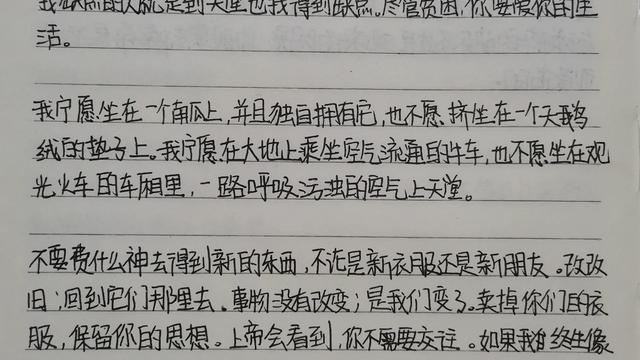 我缺点的人就是到天堂也找得到缺点。尽管贫困,你要爱你的生
活。
我宁愿坐在一个南瓜上,并且独自拥有它,也不愿挤坐在一个天鹅
绒的垫子上。我宁愿在大地上乘坐空气流通的牛车,也不愿坐在观
光火车的车厢里,一路呼吸污浊的空气上天堂。
不要费什么神去得到新的东西,不论是新衣服还是新朋友。改改
旧;回到它们那里去。事物没有改变;是我们变了。卖掉你们的衣
服,保留你的思想。上帝会看到,你不需要交往。如果我的终生像